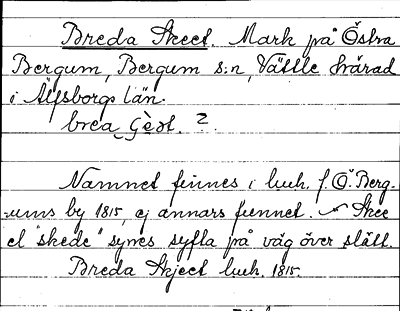 Breda Skeet. Mark på Östra
Bergum, Bergum s:n, Vättle härad
i Älfsborgs län.
brea 2.
Namnet finnes i luh. f. Ö. Berg-
ums by 1815, ej annars funnet. Skee
el "skede" synes syfta på väg över slätt.
Breda Skjeet luh. 1815.